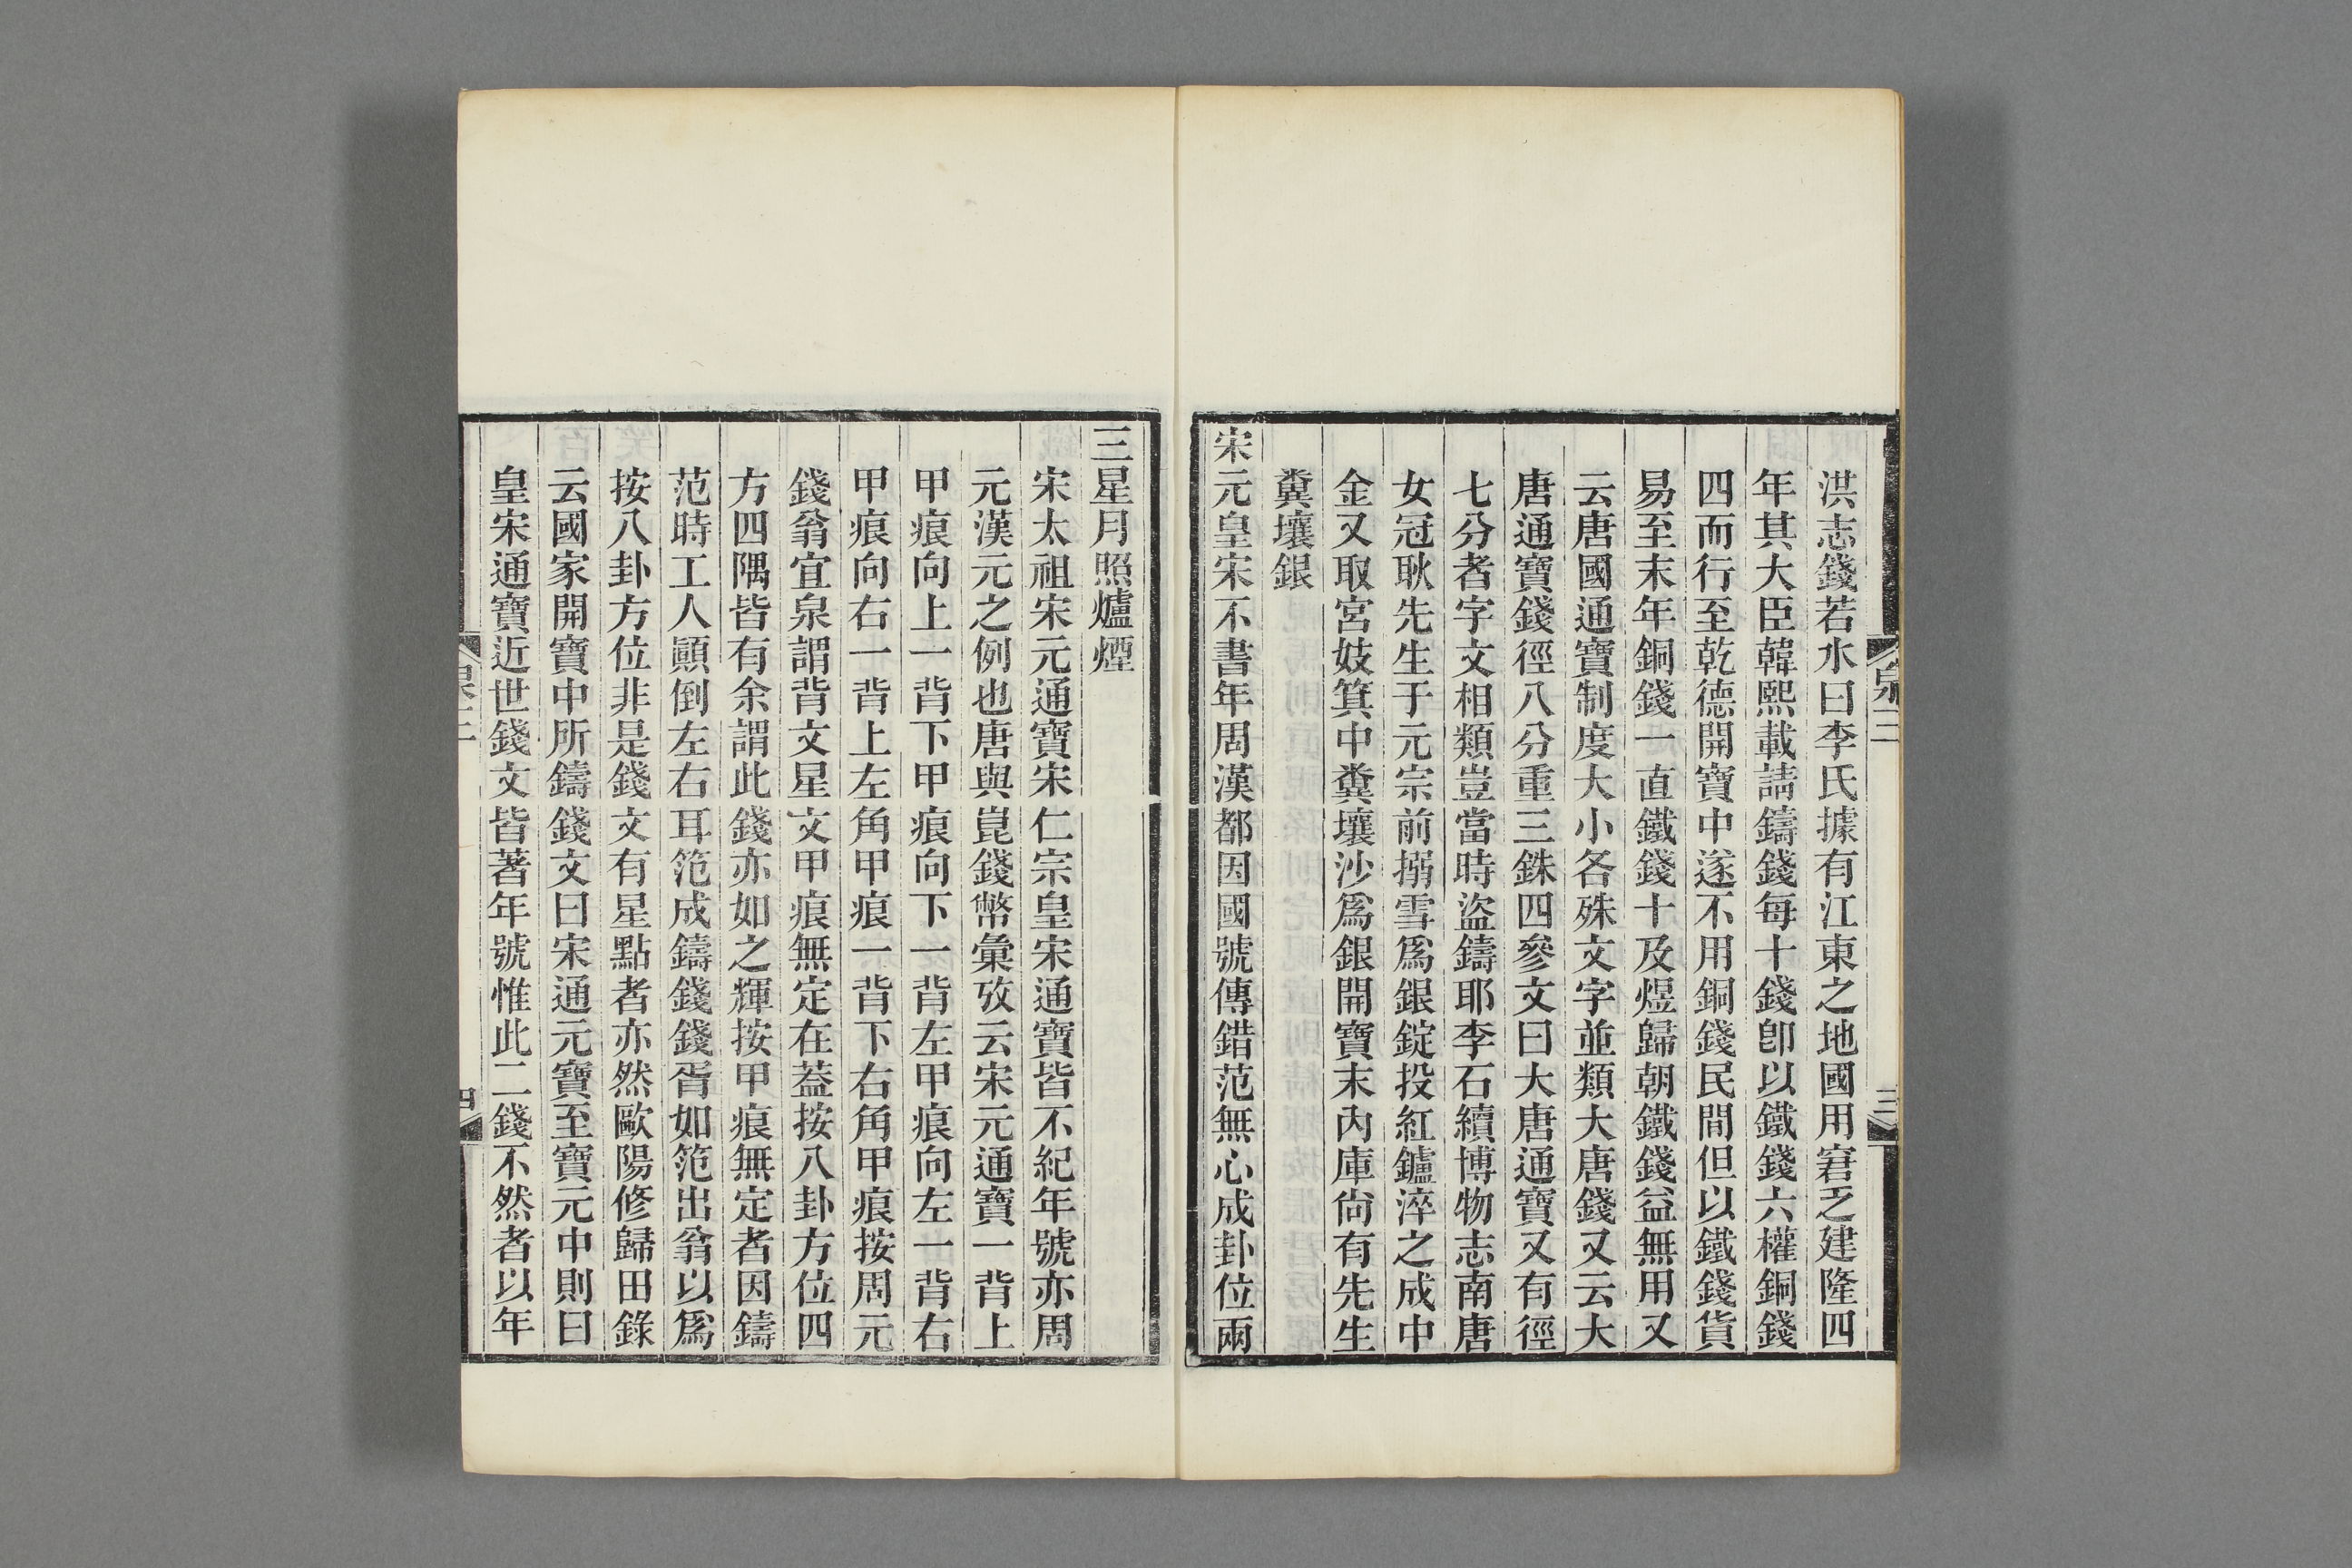 洪志錢若水曰李氏據有江東之地國用窘乏建隆四
年其大臣韓熙載請鑄錢每十錢卽以鐵錢六權銅錢
四而行至乾德開寶中遂不用銅錢民間但以鐵錢貨
易至末年銅錢一直鐵錢十及煜歸朝鐵錢益無用又
云唐國通寶制度大小各殊文字並類大唐錢又云大
唐通寶錢徑八分重三銖四參文曰大唐通寶又有徑
七分者字文相類豈當時盜鑄耶李石續博物志南唐
女冠耿先生于元宗前搦雪爲銀錠投紅鑪淬之成中
金又取宮妓箕中糞壤沙爲銀開寶末內庫尙有先生
糞壤銀
宋元皇宋不書年周漢都因國號傳錯范無心成卦位兩
泉二
三
三星月照爐煙
宋太祖宋元通寶宋仁宗皇宋通寶皆不紀年號亦周
元漢元之例也唐與崑錢幣彙攷云宋元通寶一背上
甲痕向上一背下甲痕向下一背左甲痕向左一背右
甲痕向右一背上左角甲痕一背下右角甲痕按周元
錢翁宜泉謂背文星文甲痕無定在葢按八卦方位四
方四隅皆有余謂此錢亦如之輝按甲痕無定者因鑄
范時工人顚倒左右耳笵成鑄錢錢胥如笵出翁以爲
按八卦方位非是錢文有星點者亦然歐陽修歸田錄
云國家開寶中所鑄錢文曰宋通元寶至寶元中則曰
皇宋通寶近世錢文皆著年號惟此二錢不然者以年
泉二
四